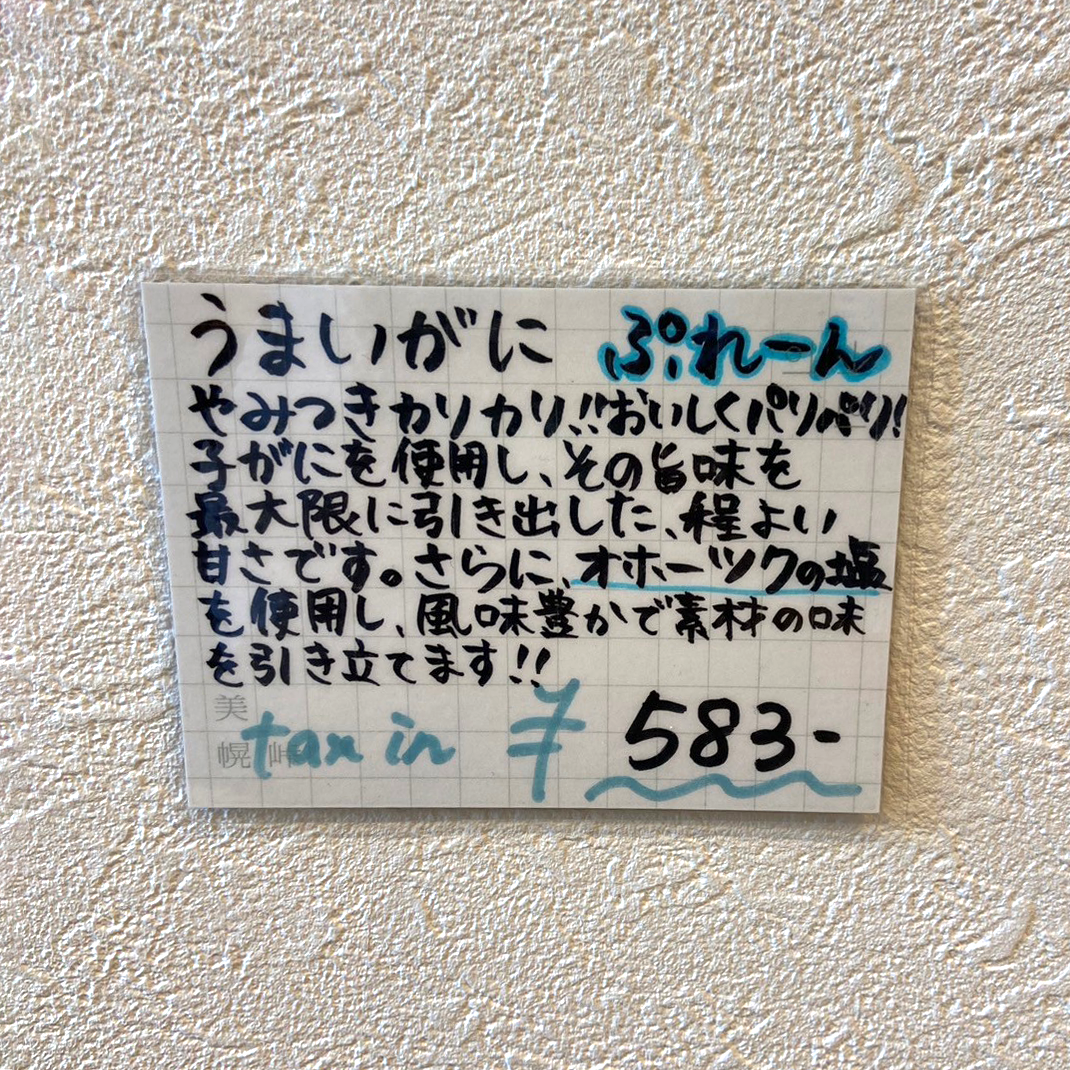 うまいがに ぷれーん
やみつきカリカリ!!おいしくパリパリ!
子がにを使用し、その旨味を
最大限に引き出した、程よい
甘さです。さらに、オホーツクの塩
を使用し、風味豊かで素材の味
を引き立てます!!
美
幌峠
tax in ¥ 583-